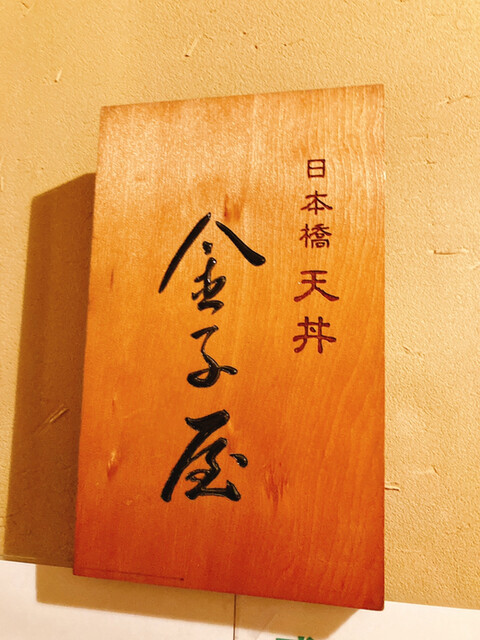 日本橋 天丼
金子屋